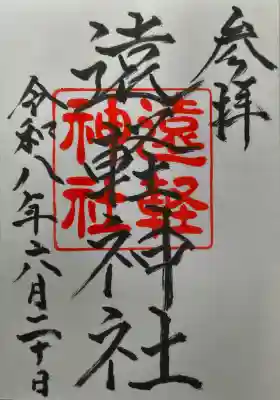 参拝
遠軽神社
遠軽
神社
令和八年六月二十日